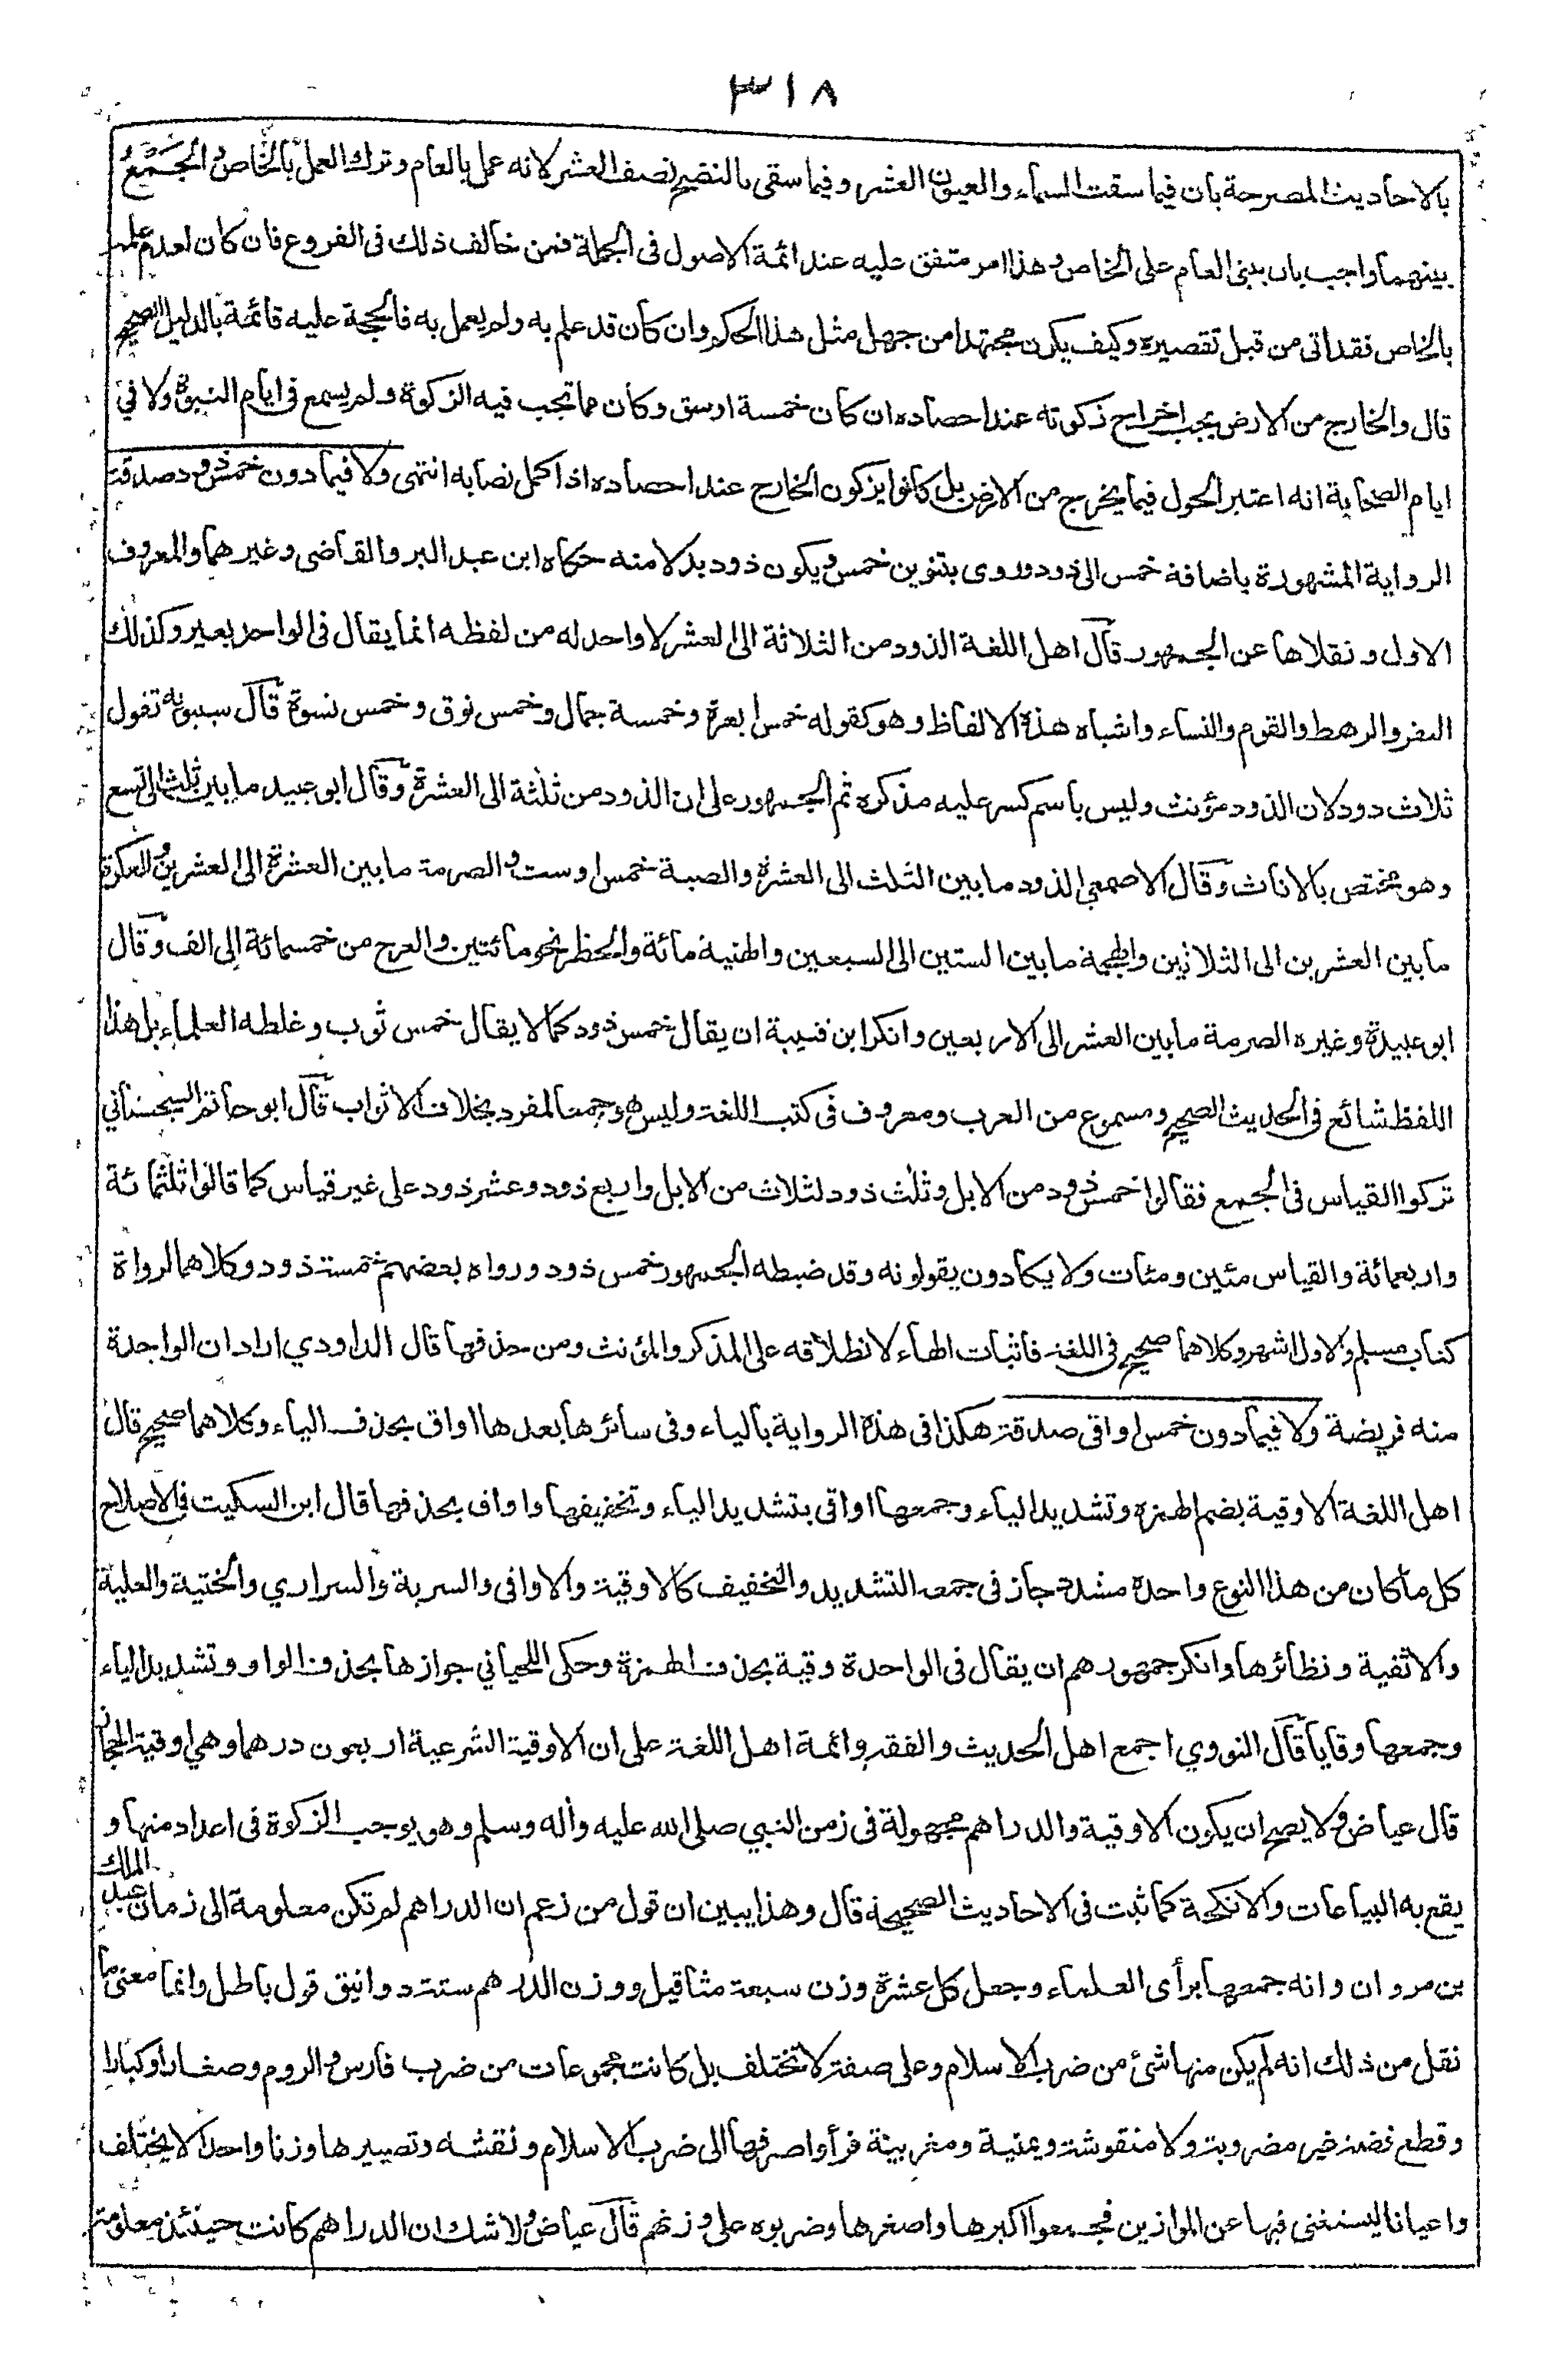 ٣١٨
بالاحاديث المصرحة بان فيما سقت السماء والعيون العشر وفيما سقى بالنضح نصف العشر لانه عمل بالعام وترك العمل بالخاص والجَمْعُ
بينهما واجب بان يبنى العام على الخاص وهذا امر متفق عليه عند ائمة الاصول فى الجملة فمن خالف ذلك فى الفروع فان كان لعدم علمه
بالخاص فقد اتى من قبل تقصيره وكيف يكون مجتهدا من جهل مثل هذا الحكم وان كان قد علم به ولم يعمل به فالحجة عليه قائمة بالدليل الصحيح
قال والخارج من الارض يجب اخراج زكوته عند احصاده ان كان خمسة اوسق وكان مما تجب فيه الزكوة ولم يسمع فى ايام النبوة ولا في
ايام الصحابة انه اعتبر الحول فيما يخرج من الارض بل كانوا يزكون الخارج عند احصاده اذا كمل نصابه انتهى ولا فيما دون خمس ذود صدقة
الرواية المشهورة باضافة خمس الى ذود وروى بتنوين خمس ويكون ذود بدلا منه حكاه ابن عبد البر والقاضى وغيرهما والمعروف
الاول ونقلاها عن الجمهور قال اهل اللغة الذود من الثلاثة الى العشر لا واحد له من لفظه انما يقال فى الواحد بعير وكذلك
النفر والرهط والقوم والنساء واشباه هذه الالفاظ وهو كقوله خمس ابعرة وخمسة جمال وخمس نوق وخمس نسوة قال سيبويه تقول
ثلاث ذود لان الذود مؤنث وليس باسم كسر عليه مذكره ثم الجمهور على ان الذود من ثلثة الى العشرة وقال ابو عبيد ما بين ثلث الى تسع
وهو مختص بالاناث وقال الاصمعي الذود ما بين الثلث الى العشرة والصبة خمس او ست والصرمة ما بين العشرة الى العشرين والعكرة
ما بين العشرين الى الثلاثين والهجمة ما بين الستين الى السبعين والهنيدة مائة والخطر نحو مائتين والعرج من خمسمائة الى الف وقال
ابو عبيدة وغيره الصرمة ما بين العشر الى الاربعين وانكر ابن قتيبة ان يقال خمس ذود كما لا يقال خمس ثوب وغلطه العلماء بل هذا
اللفظ شائع فى الحديث الصحيح ومسموع من العرب ومعروف فى كتب اللغة وليس هو جمعا لمفرد بخلاف الاثواب قال ابو حاتم السجستاني
تركوا القياس فى الجمع فقالوا خمس ذود من الابل وثلث ذود لثلاث من الابل واربع ذود وعشر ذود على غير قياس كما قالوا ثلثمائة
واربعمائة والقياس مئين ومئات ولا يكادون يقولونه وقد ضبطه الجمهور خمس ذود ورواه بعضهم خمسة ذود وكلاهما لرواة
كتاب مسلم والاول اشهر وكلاهما صحيح فى اللغة فاثبات الهاء لانطلاقه على المذكر والمؤنث ومن حذفها قال الداودي اراد ان الواحدة
منه فريضة ولا فيما دون خمس اواقى صدقة هكذا فى هذه الرواية بالياء وفى سائرها بعدها اواق بحذف الياء وكلاهما صحيح قال
اهل اللغة الاوقية بضم الهمزه وتشديد الياء وجمعها اواقى بتشديد الياء وتخفيفها واواق بحذفها قال ابن السكيت فى الاصلاح
كل ما كان من هذا النوع واحده مشددا جاز فى جمعه التشديد والتخفيف كالاوقية والاواقى والسرية والسراري والختية والعلية
والاثفية ونظائرها وانكر جمهورهم ان يقال فى الواحدة وقية بحذف الهمزة وحكى اللحياني جوازها بحذف الواو وتشديد الياء
وجمعها وقايا قال النووي اجمع اهل الحديث والفقه وائمة اهل اللغة على ان الاوقية الشرعية اربعون درهما وهي اوقية الحجاز
قال عياض ولا يصح ان يكون الاوقية والدراهم مجهولة فى زمن النبي صلى الله عليه واله وسلم وهو يوجب الزكوة فى اعداد منها و
يقع به البياعات والانكحة كما ثبت فى الاحاديث الصحيحة قال وهذا يبين ان قول من زعم ان الدراهم لم تكن معلومة الى زمان عبد الملك
بن مروان وانه جمعها برأى العلماء وجعل كل عشرة وزن سبعة مثاقيل ووزن الدرهم ستة دوانيق قول باطل وانما معنى ما
نقل من ذلك انه لم يكن منها شئ من ضرب الاسلام وعلى صفة لا تختلف بل كانت مجموعات من ضرب فارس والروم وصغارا وكبارا
وقطع فضة غير مضروبة ولا منقوشة ويمنية ومغربية فرأوا صرفها الى ضرب الاسلام ونقشه وتصييرها وزنا واحدا لا يختلف
واعيانا ليستغنى فيها عن الموازين فجمعوا اكبرها واصغرها وضربوه على وزنهم قال عياض ولا شك ان الدراهم كانت حينئذ معلومة